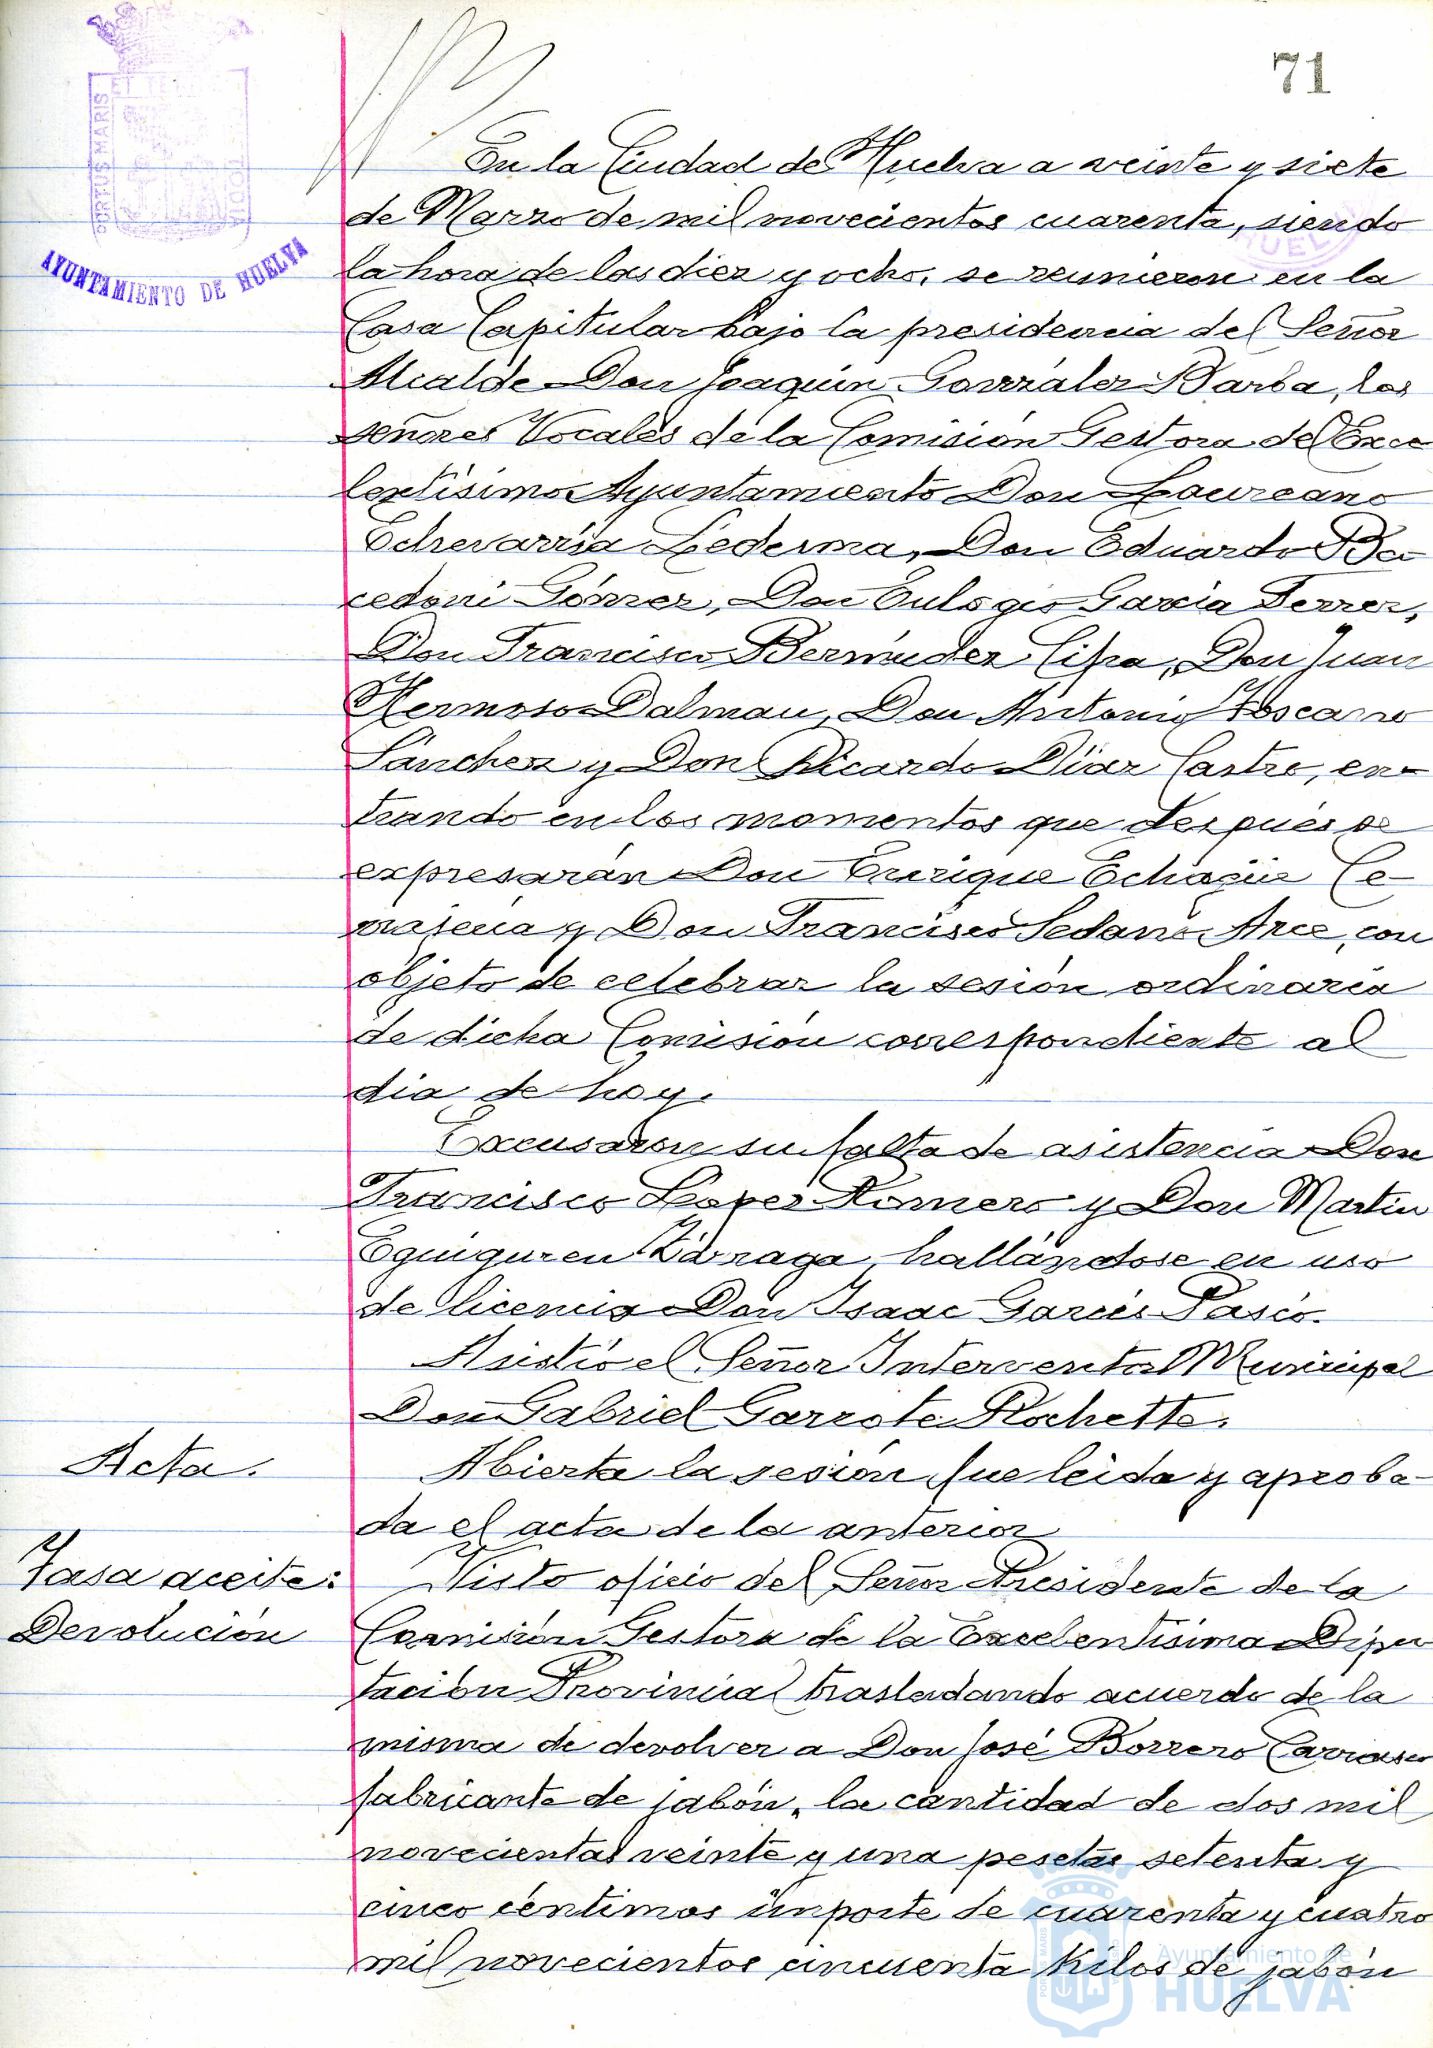 71
PORTUS MARIS
ET TERRÆ
CUSTODIA
AYUNTAMIENTO DE HUELVA
En la Ciudad de Huelva a veinte y siete
de Marzo de mil novecientos cuarenta, siendo
la hora de las diez y ocho, se reunieron en la
Casa Capitular bajo la presidencia del Señor
Alcalde Don Joaquín González Barba, los
señores Vocales de la Comisión Gestora del Exce
lentísimo Ayuntamiento Don Laureano
Echevarría Ledesma, Don Eduardo
cedoni Gómez, Don Eulogio García Ferrer,
Don Francisco Bermúdez Cipa, Don Juan
Hermoso Dalmau, Don Antonio Toscano
Sánchez y Don Ricardo Díaz Castro, en-
trando en los momentos que después se
expresarán Don Enrique Echagüe Ce-
y Don Francisco Sedano Arce, con
objeto de celebrar la sesión ordinaria
de dicha Comisión correspondiente al
día de hoy.
Excusaron su falta de asistencia Don
Francisco López Romero y Don Martín
Eguiguren Zárraga, hallándose en uso
de licencia Don Isaac García Pasco.
Asistió el Señor Interventor Municipal
Don Gabriel Garrote Rochette.
Acta. Abierta la sesión fue leída y aproba-
da el acta de la anterior
Tasa aceite: Visto oficio del Señor Presidente de la
Devolución Comisión Gestora de la Excelentísima Dipu
tación Provincial trasladando acuerdo de la
misma de devolver a Don José Borrero Carrasco
fabricante de jabón, la cantidad de dos mil
novecientas veinte y una pesetas setenta y
cinco céntimos importe de cuarenta y cuatro
mil novecientos cincuenta kilos de jabón
Ayuntamiento de
HUELVA